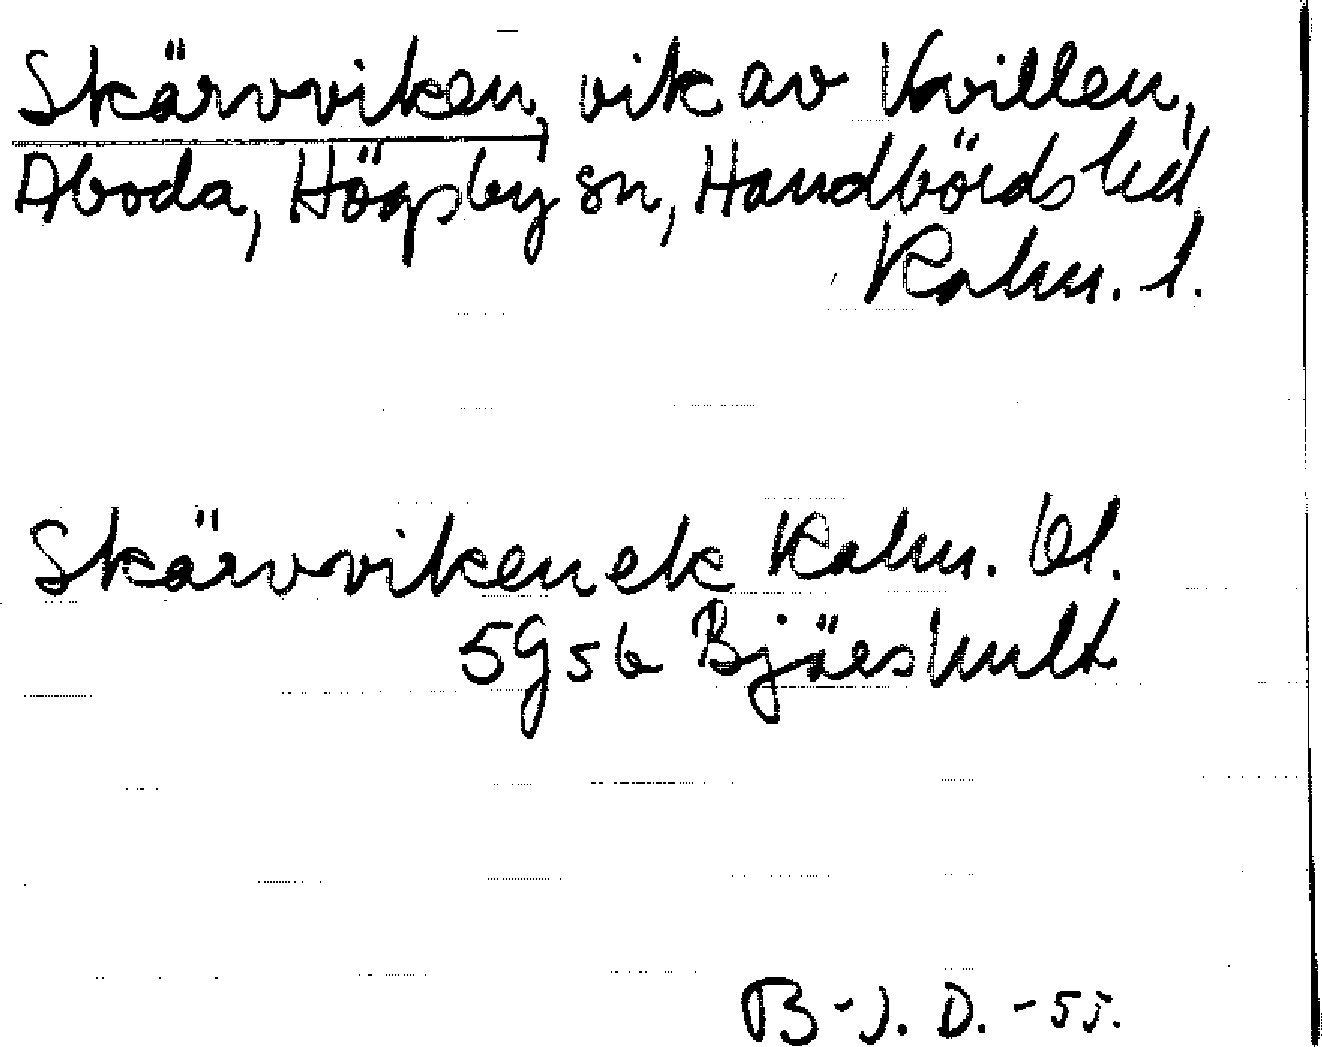 Skärvviken, vik av Kvillen,
Aboda, Högsby sn, Handbörds hd
Kalm. l.
Skärvviken ek Kalm. bl.
5G5b Bjäreshult
B-J. D. -55.